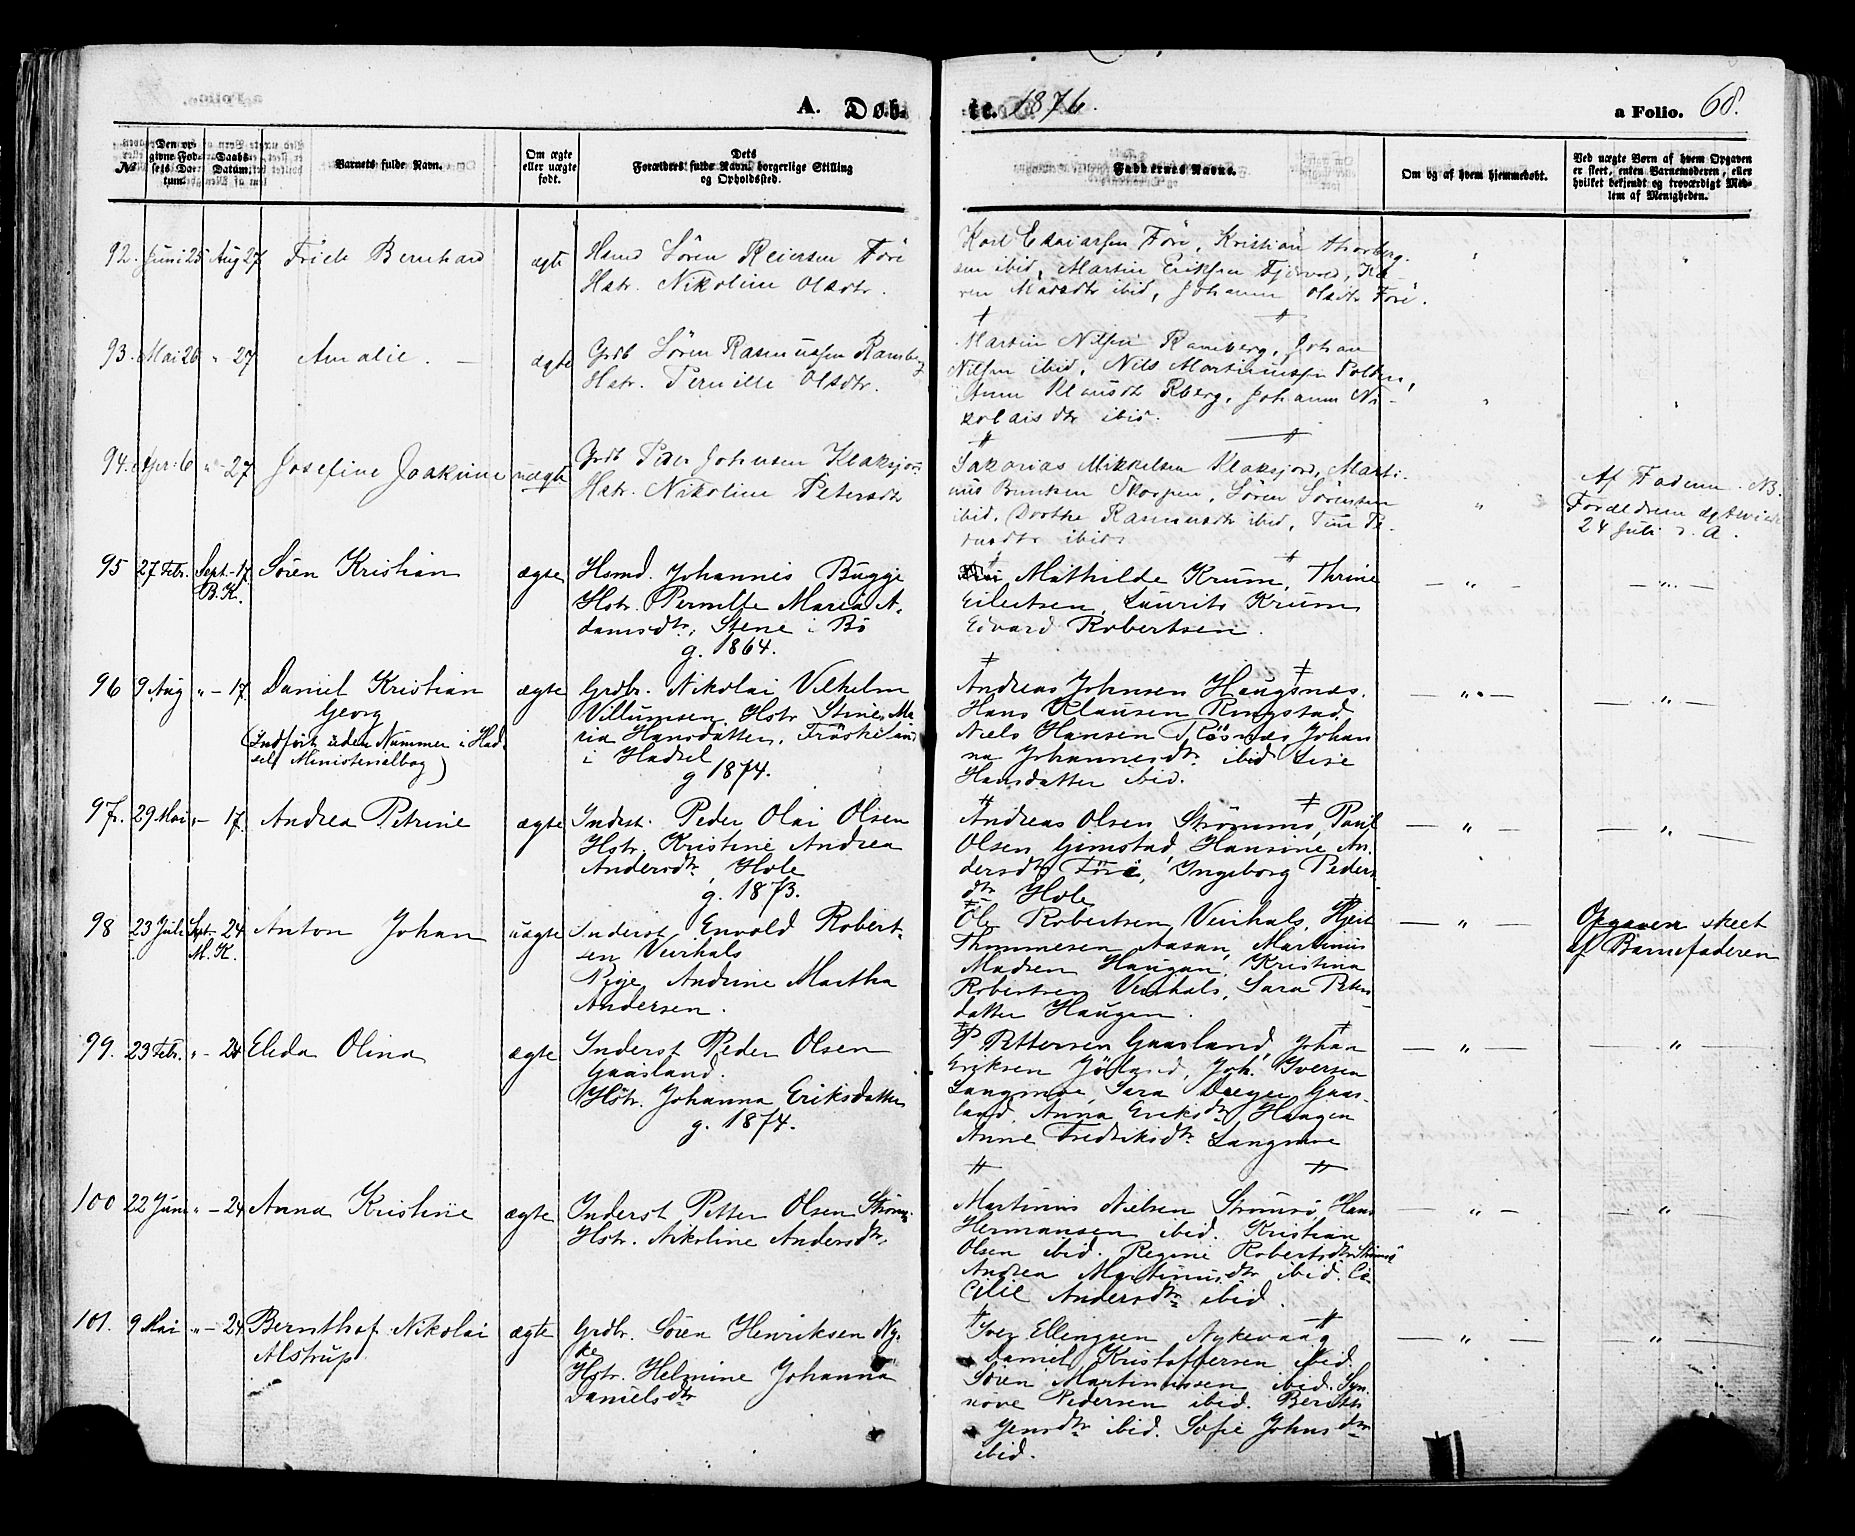 A. Døb-
te. 1876.
a Folio. 68.
№
Den opgivne Fødselsdatum.
Daabs-Datum.
Barnets fulde Navn.
Om ægte eller uægte født.
Dets Forældres fulde Navn, borgerlige Stilling og Opholdssted.
Faddernes Navne.
Om og af hvem hjemmedøbt.
Ved uægte Børn af hvem Opgaven
er skeet, enten Barnemoderen, eller
hvilket bekjendt og troværdigt Med-
lem af Menigheden.
92. Juni 25 Aug 27 Bernhard ægte Hsmd Sören Reiersen Före
Hstr. Nikoline Olsdtr.
Karl Edvardsen Före, Kristian Thorberg-
sen ibid, Martin Eriksen Fjærvold, Ka-
ren Madsdtr ibid, Johanna Olsdtr Före.
93. Mai 26 " 27 Amalie. — ægte Grdb Sören Rasmussen Ramberg
Hstr. Pernille Olsdtr.
Martin Nilsen Ramberg, Johan
Nilsen ibid, Nils Martinussen
Anne Klausdtr Rberg, Johanna Ni-
kolaisdtr ibid.
94. Apr: 6 " - 27 Josefine Joakime uægte Grdb Peder Johnsen Klaksjord
Hstr. Nikoline Petersdtr
Sakarias Mikkelsen Klaksjord, Marti-
nus Skorpen, Sören Sörensen
ibid, Dorthe Rasmusdtr ibid,
ibid.
Af Faderen. NB.
Forældrene ægteviede
24 Juli d. A.
95 27 Febr. Sept - 17 Sören Kristian ægte Hsmd. Johannes Bugge
B.K.
Hstr. Pernille Maria A-
damsdtr, Stene i Bö
g. 1864.
Mathilde Krum, Thrine
Eilertsen, Laurits Krum
Edvard Robertsen.
— " —
— " —
96 9 Aug " - 17 Daniel Kristian ægte Grdbr. Nikolai Vilhelm
Georg
(Indført uden Nummer i Had-
sels Ministerialbog)
Villumsen, Hstr Stine Ma-
ria Hansdatter, Fröskeland
i Hadsel
g 1874.
Andreas Johnsen Haugsnæs.
Hans Klausen Ringstad
Niels Hansen Rösnæs Johan
na Johannesdtr ibid Lise
Hansdatter ibid.
— " —
— " —
97. 29 Mai " - 17. Andrea Petrine ægte Inderst. Peder Olai Olsen
Hstr. Kristine Andrea
Andersdtr, Hole
g. 1873.
Andreas Olsen Strömmö, Paul
Olsen Gimstad, Hansine An-
dersdtr Före, Ingeborg Peders-
dtr Hole
— " —
— " —
98 23 Juli Sept - 24 Anton Johan uægte Inderst Envold Robert-
M.K.
sen Veirhals
Pige Andrine Martha
Andersen.
Ole Robertsen Veirhals,
Thommesen Aasan, Martinus
Madsen Haugan. Kristina
Robertsen Veirhals, Sara Peters-
datter Haugen.
— " —
Opgaven skeet
af Barnefaderen
99. 23 Febr. " - 24 Elida Olina ægte Inderst Peder Olsen
Gaasland.
Hstr. Johanna Eriksdatter
g. 1874.
P Pettersen Gaasland, Johan
Eriksen Jörland, Joh. Iversen
Langmoe, Sara Dreyer Gaas-
land, Anna Eriksdtr Haugen
Anne Fredriksdtr Langmoe
— " —
— " —
100 22 Juni " - 24 Anna Kristine ægte Inderst Petter Olsen Strömö
Hstr. Nikoline Andersdtr.
Martinus Nielsen Strömö, Hans
Hermansen ibid. Kristian
Olsen ibid. Regine Robertsdtr Strömsö
Andrea Martinusdtr ibid. Ce-
celie Andersdtr ibid.
— " —
— " —
101. 9 Mai " - 24 Bernthof Nikolai ægte Grdbr. Sören Henriksen Ny-
Alstrup
ke
Hstr. Helmine Johanna
Danielsdtr
Iver Ellingsen Nykevaag
Daniel Kristoffersen ibid.
Sören Martinussen ibid. Syn-
növe Pedersen ibid. Berith
Jensdtr ibid. Sofie Johnsdtr
ibid.
— " —
— " —